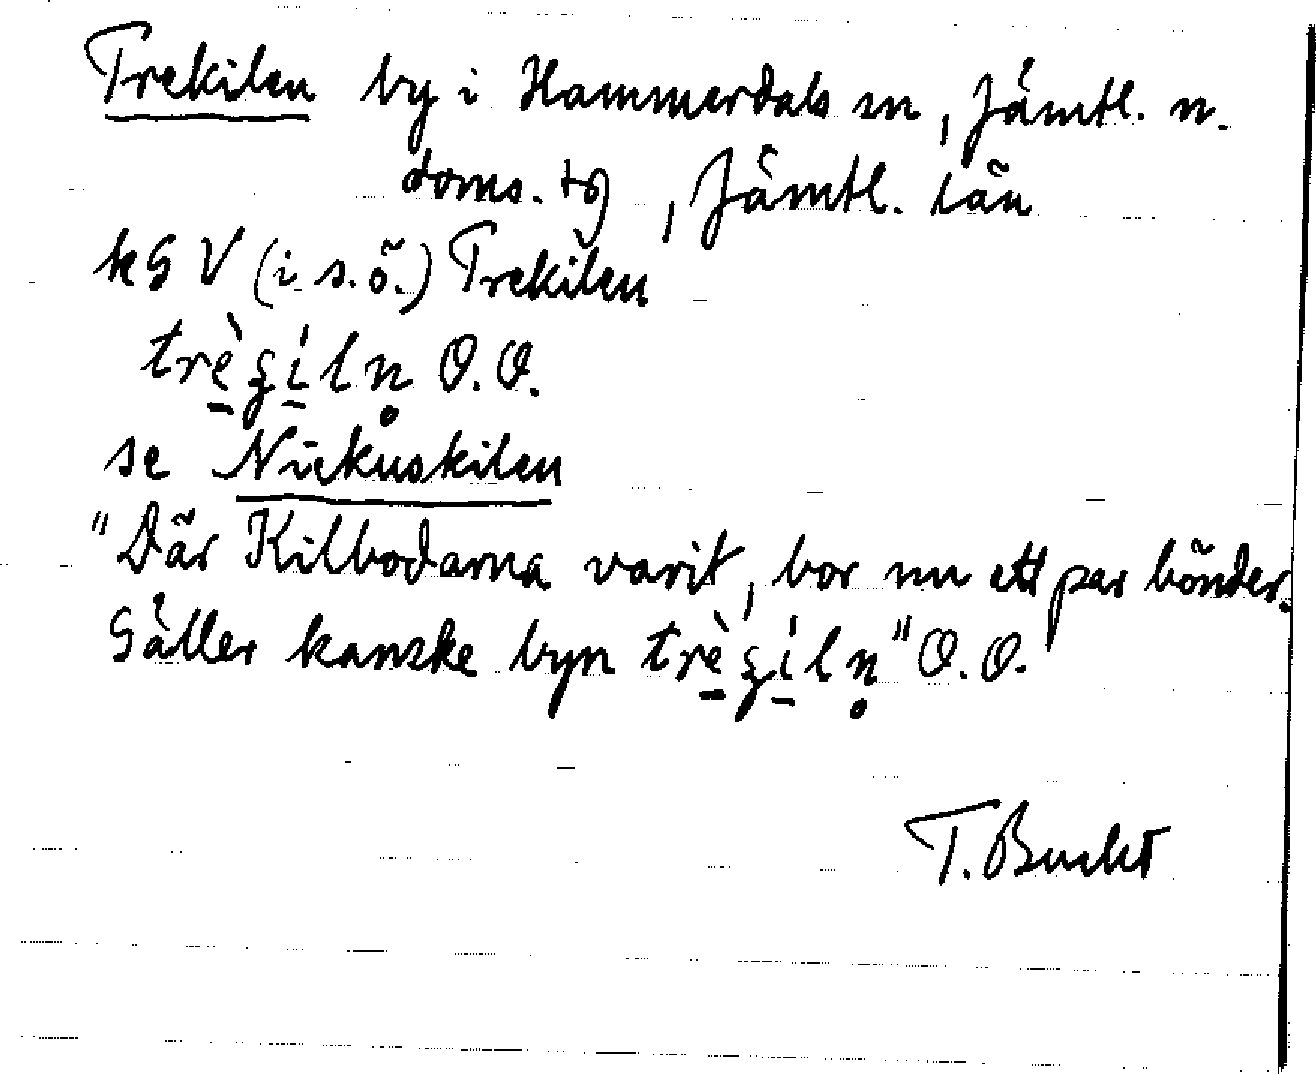 Trekilen by i Hammerdals sn, Jämtl. n.
doms. tg, Jämtl. län
kG V (i s.ö.) Trekilen
trè̠gí̠ln̥ O.O.
se Nickuskilen
"Där Kilbodarna varit, bor nu ett par bönder.
Gäller kanske byn trè̠gí̠ln̥" O.O.
T. Bucht